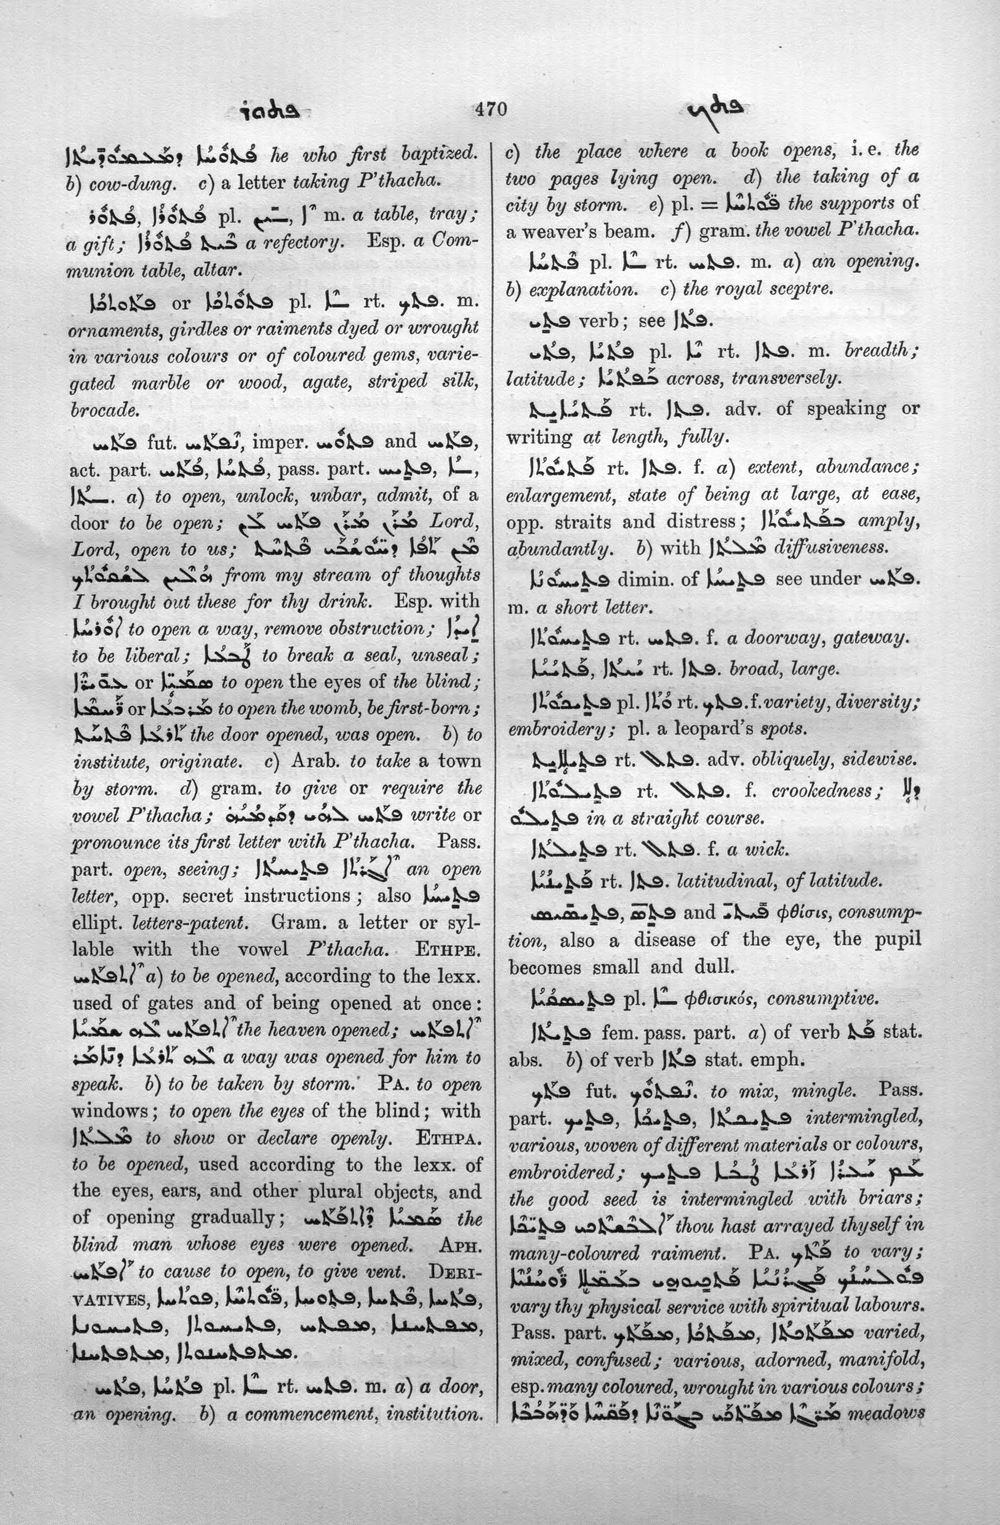 ܦܬܘܪ 470 ܦܬܟ
ܦܬܘܚܐ he who first baptized.
b) cow-dung. c) a letter taking P'thacha.
ܦܬܘܪ, ܦܬܘܪܐ pl. m. a table, tray;
a gift; ܒܝܬ ܦܬܘܪܐ a refectory. Esp. a Com-
munion table, altar.
or ܦܬܘܟܐ pl. rt. ܦܬܟ. m.
ornaments, girdles or raiments dyed or wrought
in various colours or of coloured gems, varie-
gated marble or wood, agate, striped silk,
brocade.
ܦܬܚ fut. ܢܦܬܚ, imper. ܦܬܘܚ and ܦܬܚ,
act. part. ܦܬܚ, ܦܬܚܐ, pass. part. ܦܬܝܚ, ܐ,
a) to open, unlock, unbar, admit, of a
door to be open; ܡܪܢ ܡܪܢ ܦܬܚ ܠܢ Lord,
Lord, open to us;
from my stream of thoughts
I brought out these for thy drink. Esp. with
ܐܘܪܚܐ to open a way, remove obstruction; ܐܝܕܐ
to be liberal; ܛܒܥܐ to break a seal, unseal;
or ܣܡܝܐ to open the eyes of the blind;
ܪܚܡܐ or ܡܪܒܥܐ to open the womb, be first-born;
ܬܪܥܐ the door opened, was open. b) to
institute, originate. c) Arab. to take a town
by storm. d) gram. to give or require the
vowel P'thacha; ܦܬܚ write or
pronounce its first letter with P'thacha. Pass.
part. open, seeing; ܐܓܪܬܐ ܦܬܝܚܬܐ an open
letter, opp. secret instructions; also ܦܬܝܚܐ
ellipt. letters-patent. Gram. a letter or syl-
lable with the vowel P'thacha. ETHPE.
ܐܬܦܬܚ a) to be opened, according to the lexx.
used of gates and of being opened at once:
ܐܬܦܬܚ ܠܗ ܫܡܝܐ the heaven opened; ܐܬܦܬܚ
ܠܗ ܬܪܥܐ ܕܢܐܡܪ a way was opened for him to
speak. b) to be taken by storm. PA. to open
windows; to open the eyes of the blind; with
ܡܠܬܐ to show or declare openly. ETHPA.
to be opened, used according to the lexx. of
the eyes, ears, and other plural objects, and
of opening gradually; ܣܡܝܐ ܕܐܬܦܬܚ the
blind man whose eyes were opened. APH.
ܐܦܬܚ to cause to open, to give vent. DERI-
VATIVES, ܦܬܚܐ,
ܡܦܬܚܢܐ,
ܡܬܦܬܚܢܐ, ܡܬܦܬܚܢܘܬܐ.
ܦܬܚ, ܦܬܚܐ pl. rt. ܦܬܚ. m. a) a door,
an opening. b) a commencement, institution.
c) the place where a book opens, i.e. the
two pages lying open. d) the taking of a
city by storm. e) pl. = the supports of
a weaver's beam. f) gram. the vowel P'thacha.
ܦܬܚܐ pl. rt. ܦܬܚ. m. a) an opening.
b) explanation. c) the royal sceptre.
ܦܬܝ verb; see ܦܬܐ.
ܦܬܝ, ܦܬܝܐ pl. rt. ܦܬܐ. m. breadth;
latitude; ܒܦܬܝܐ across, transversely.
ܦܬܝܐܝܬ rt. ܦܬܐ. adv. of speaking or
writing at length, fully.
ܦܬܝܘܬܐ rt. ܦܬܐ. f. a) extent, abundance;
enlargement, state of being at large, at ease,
opp. straits and distress; ܒܦܬܝܘܬܐ amply,
abundantly. b) with ܡܠܬܐ diffusiveness.
ܦܬܝܚܘܢܐ dimin. of ܦܬܝܚܐ see under ܦܬܚ.
m. a short letter.
ܦܬܝܚܘܬܐ rt. ܦܬܚ. f. a doorway, gateway.
ܦܬܝܢܐ, rt. ܦܬܐ. broad, large.
ܦܬܝܟܘܬܐ pl. rt. ܦܬܟ. f. variety, diversity;
embroidery; pl. a leopard's spots.
ܦܬܝܠܐܝܬ rt. ܦܬܠ. adv. obliquely, sidewise.
ܦܬܝܠܘܬܐ rt. ܦܬܠ. f. crookedness; ܕܠܐ
ܦܬܝܠܘ in a straight course.
ܦܬܝܠܬܐ rt. ܦܬܠ. f. a wick.
ܦܬܝܢܝܐ rt. ܦܬܐ. latitudinal, of latitude.
and φθίσις, consump-
tion, also a disease of the eye, the pupil
becomes small and dull.
ܦܬܝܣܩܝܐ pl. φθισικός, consumptive.
ܦܬܝܬܐ fem. pass. part. a) of verb ܦܬ stat.
abs. b) of verb ܦܬܐ stat. emph.
ܦܬܟ fut. ܢܦܬܘܟ. to mix, mingle. Pass.
part. ܦܬܝܟ, ܦܬܝܟܐ, ܦܬܝܟܬܐ intermingled,
various, woven of different materials or colours,
embroidered; ܥܡ ܝܥܪܐ ܙܪܥܐ ܛܒܐ ܦܬܝܟ
the good seed is intermingled with briars;
thou hast arrayed thyself in
many-coloured raiment. PA. ܦܬܟ to vary;
ܦܘܠܚܢܟ ܦܓܪܢܝܐ
vary thy physical service with spiritual labours.
Pass. part. ܡܦܬܟ, ܡܦܬܟܐ, ܡܦܬܟܬܐ varied,
mixed, confused; various, adorned, manifold,
esp. many coloured, wrought in various colours;
meadows